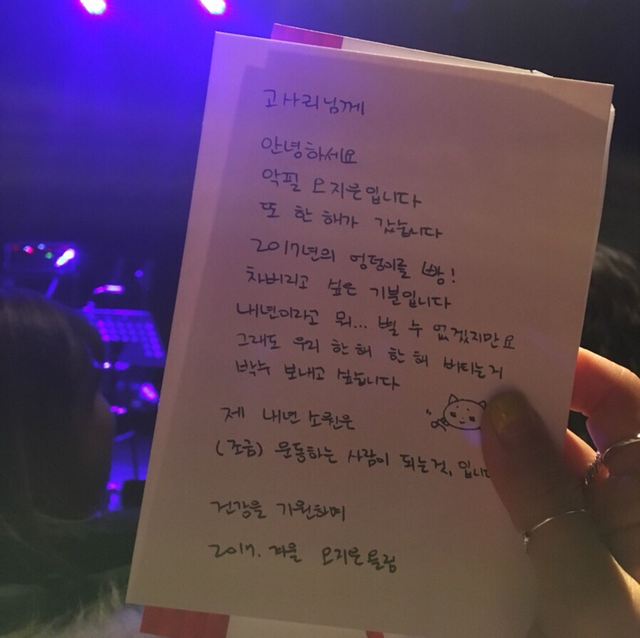 고사리님께
안녕하세요
악필 오지은입니다
또 한 해가 갔습니다
2017년의 엉덩이를 빵!
차버리고 싶은 기분입니다
내년이라고 뭐... 별 수 없겠지만요
그래도 우리 한 해 한 해 버티는거
박수 보내고 싶습니다
제 내년 소원은
(조금) 운동하는 사람이 되는 것, 입니다
건강을 기원하며
2017. 겨울 오지은 올림